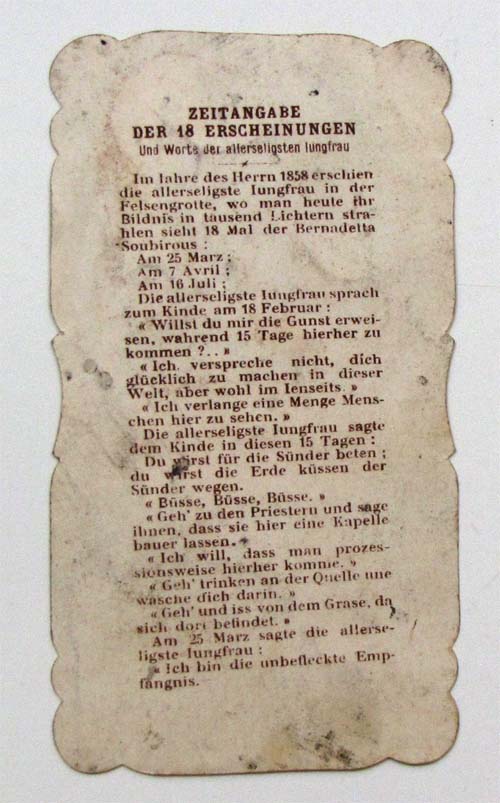 ZEITANGABE
DER 18 ERSCHEINUNGEN
Und Worte der allerseligsten Iungfrau
Im Iahre des Herrn 1858 erschien
die allerseligste Iungfrau in der
Felsengrotte, wo man heute ihr
Bildnis in tausend Lichtern stra-
hlen sieht 18 Mal der Bernadetta
Soubirous :
Am 25 Marz ;
Am 7 Avril ;
Am 16 Juli ;
Die allerseligste Iungfrau sprach
zum Kinde am 18 Februar :
« Willst du mir die Gunst erwei-
sen, wahrend 15 Tage hierher zu
kommen ?.. »
« Ich verspreche nicht, dich
glücklich zu machen in dieser
Welt, aber wohl im Ienseits. »
« Ich verlange eine Menge Mens-
chen hier zu sehen. »
Die allerseligste Iungfrau sagte
dem Kinde in diesen 15 Tagen :
Du wirst für die Sünder beten ;
du wirst die Erde küssen der
Sünder wegen.
« Büsse, Büsse, Büsse. »
« Geh' zu den Priestern und sage
ihnen, dass sie hier eine Kapelle
bauer lassen. »
« Ich will, dass man prozes-
sionsweise hierher komme. »
« Geh' trinken an der Quelle une
wasche dich darin. »
« Geh' und iss von dem Grase, da
sich dort befindet. »
Am 25 Marz sagte die allerse-
ligste Iungfrau :
« Ich bin die unbefleckte Emp-
fangnis.